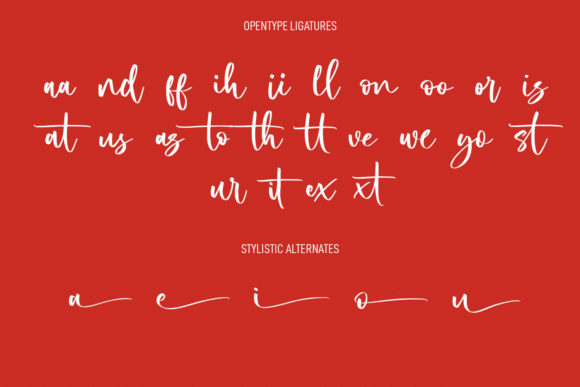 OPENTYPE LIGATURES
aa nd ff ih ii ll on oo or is
at us as to th tt ve we yo st
ur it ex xt
STYLISTIC ALTERNATES
a e i o u